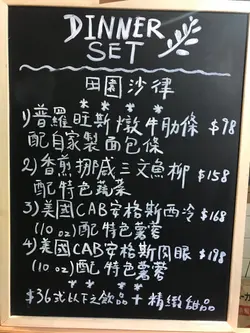 DINNER
SET
田園沙律
****
1)普羅旺斯燉牛肋條 $98
配自家製面包條
2)香煎挪威三文魚柳 $158
配特色蔬菜
3)美國CAB安格斯西冷 $168
(10oz)配特色薯蓉
4)美國CAB安格斯肉眼 $198
(10oz)配特色薯蓉
****
$36或以下之飲品+精緻甜品